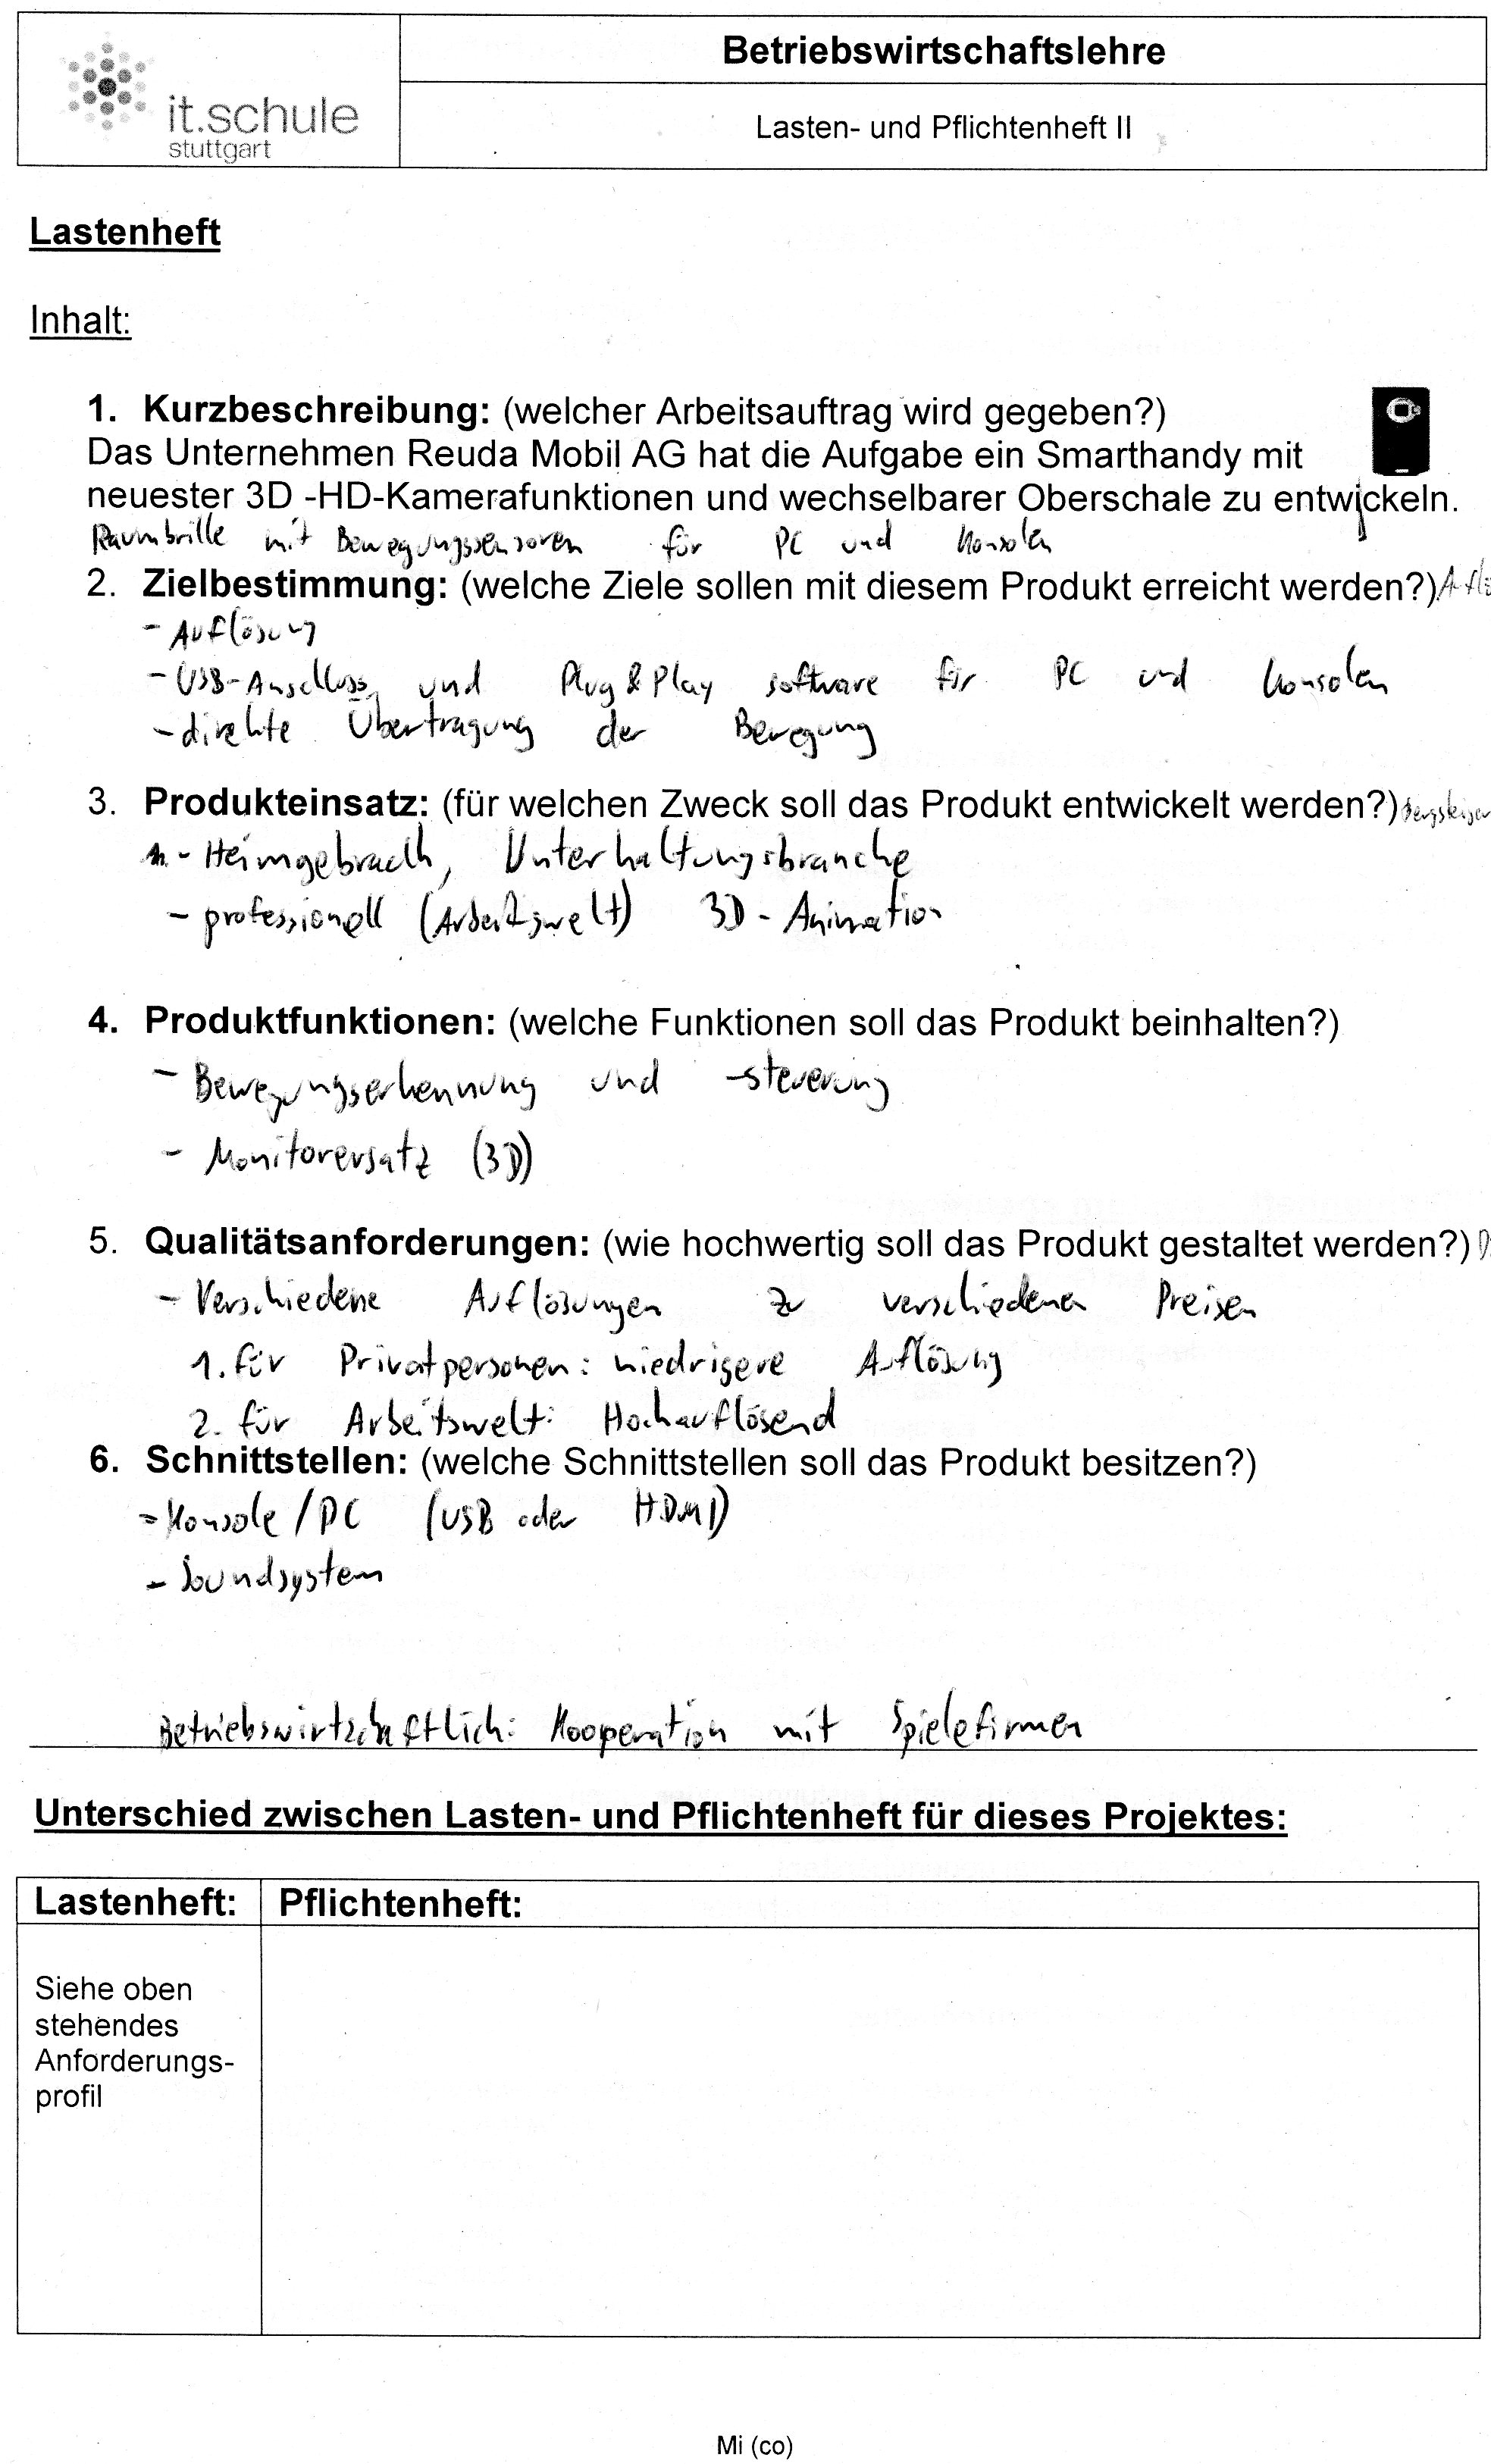 it.schule
stuttgart
Betriebswirtschaftslehre
Lasten- und Pflichtenheft II
Lastenheft
Inhalt:
1. Kurzbeschreibung: (welcher Arbeitsauftrag wird gegeben?)
Das Unternehmen Reuda Mobil AG hat die Aufgabe ein Smarthandy mit
neuester 3D -HD-Kamerafunktionen und wechselbarer Oberschale zu entwickeln.
Raumbrille mit Bewegungssensoren für PC und Konsolen
2. Zielbestimmung: (welche Ziele sollen mit diesem Produkt erreicht werden?)
- Auflösung
- USB-Anschluss und Plug & Play software für PC und Konsolen
- direkte Übertragung der Bewegung
3. Produkteinsatz: (für welchen Zweck soll das Produkt entwickelt werden?)
- Heimgebrauch, Unterhaltungsbranche
- professionell (Arbeitswelt) 3D-Animation
4. Produktfunktionen: (welche Funktionen soll das Produkt beinhalten?)
- Bewegungserkennung und -steuerung
- Monitorersatz (3D)
5. Qualitätsanforderungen: (wie hochwertig soll das Produkt gestaltet werden?)
- Verschiedene Auflösungen zu verschiedenen Preisen
1. für Privatpersonen: niedrigere Auflösung
2. für Arbeitswelt: Hochauflösend
6. Schnittstellen: (welche Schnittstellen soll das Produkt besitzen?)
- Konsole/PC (USB oder HDMI)
- Soundsystem
Betriebswirtschaftlich: Kooperation mit Spielefirmen
Unterschied zwischen Lasten- und Pflichtenheft für dieses Projektes:
Lastenheft:
Pflichtenheft:
Siehe oben
stehendes
Anforderungs-
profil
Mi (co)